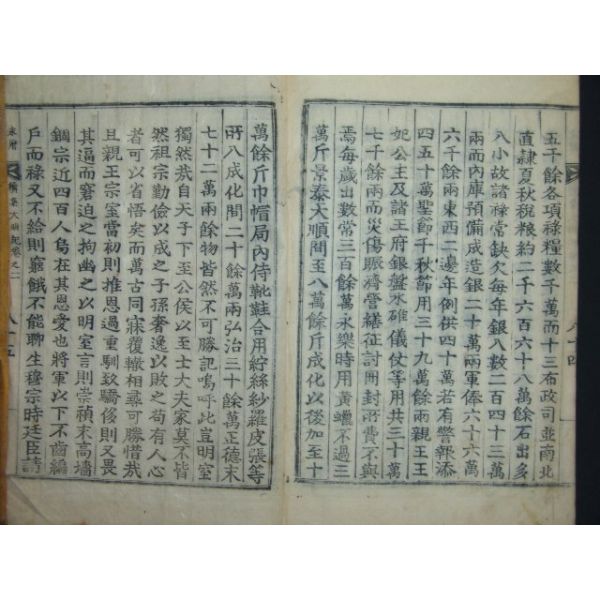 五千餘各項祿糧數千萬而十三布政司並南北
直隷夏秋稅粮約二千六百六十八萬餘石出多
入小故諸祿常缺欠每年銀入數二百四十三萬
兩而內庫預備成造銀二十萬兩軍俸六十六萬
六千餘兩東西二邊年例供四十萬若有警報添
四五十萬聖節千秋節用三十九萬餘兩親王王
妃公主及諸王府銀盤水碓儀仗等用共三十萬
七千餘兩而災傷賑濟營繕征討開封所費不與
焉每歲出數常三百餘萬永樂時用黃蠟不過三
萬斤景泰大順間至八萬餘斤成化以後加至十
八十四
萬餘斤巾帽局內侍靴鞋合用紵絲紗羅皮張等
所入成化間二十餘萬兩弘治三十餘萬正德末
七十二萬兩餘物皆然不可勝記嗚呼此豈明室
獨然哉自天子下至公侯以至士大夫家莫不皆
然祖宗勤儉以成之子孫奢逸以敗之苟有人心
者可以省悟矣而萬古同寐覆轍相尋可勝惜哉
且親王宗室當初則推恩過重馴致驕侈則又畏
其逼而窘迫之拘幽之以明室言則崇禎末高墻
錮宗近四百人烏在其恩愛也將軍以下不齒編
戶而祿又不給則窮餓不能聊生穆宗時廷臣請
卷之二 八十五